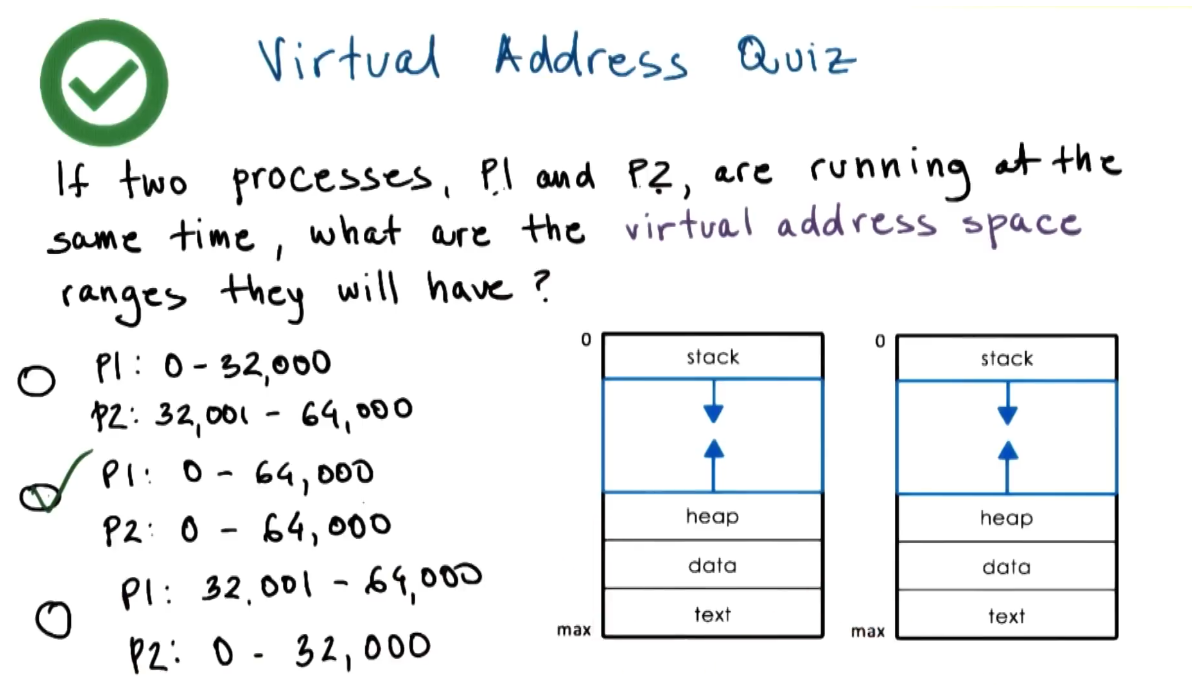 Virtual Address Quiz
If two processes, P1 and P2, are running at the
same time, what are the virtual address space
ranges they will have?
P1: 0 - 32,000
P2: 32,001 - 64,000
P1: 0 - 64,000
P2: 0 - 64,000
P1: 32,001 - 64,000
P2: 0 - 32,000
0
stack
heap
data
text
max
0
stack
heap
data
text
max